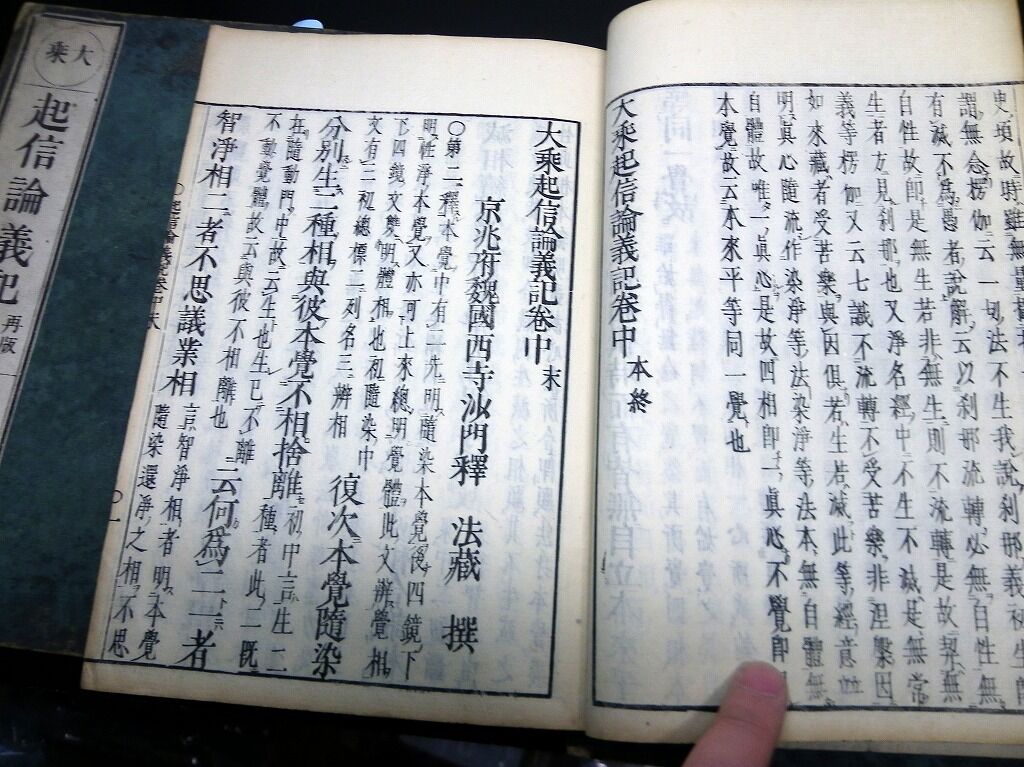 史頃故時雖無量
謂無念楞伽云一切法不生我說刹那義初生即
有滅不為愚者說解云以刹那流轉必無自性無
自性故即是無生若非無生則不流轉是故契無
生者方見刹那也又淨名經中不生不滅是無常
義等楞伽又云七識不流轉不受苦樂非涅槃因
如來藏者受苦樂與因俱若生若滅此等經意並
明眞心隨流作染淨等法染淨等法本無自體無
自體故唯一眞心是故四相即一眞心不覺即同
本覺故云本來平等同一覺也
大乘起信論義記卷中 本終
大乘起信論義記卷中 末
京兆府魏國西寺沙門釋 法藏 撰
○第二釋本覺中有二先明隨染本覺後四鏡下
明性淨本覺又亦可上來總明覺體此文辨覺相
下四鏡文雙明體相也初隨染中
文有三初總標二列名三辨相
復次本覺隨染
分別生二種相與彼本覺不相捨離
初中言生二
種者此二既
在隨動門中故云生也生已不離
不動覺體故云與彼不相離也
云何為二一者
智淨相二者不思議業相
言智淨相者明本覺
隨染還淨之相不思
○起信論義記卷中末
○一
大乘
起信論義記 再版